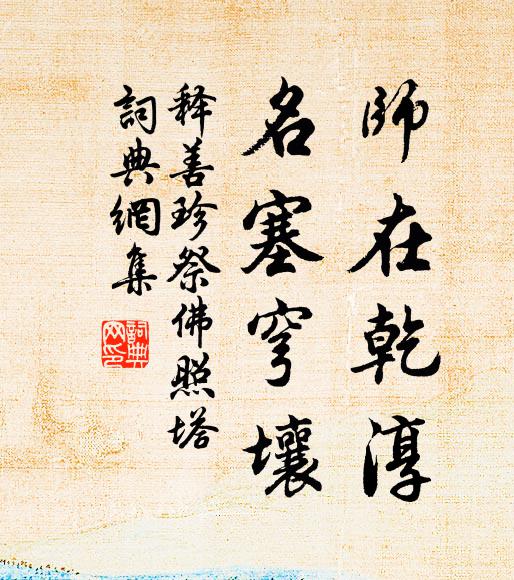 師在乾淳
名塞穹壤
释善珍祭佛照塔
詞典網集
詞典
网印